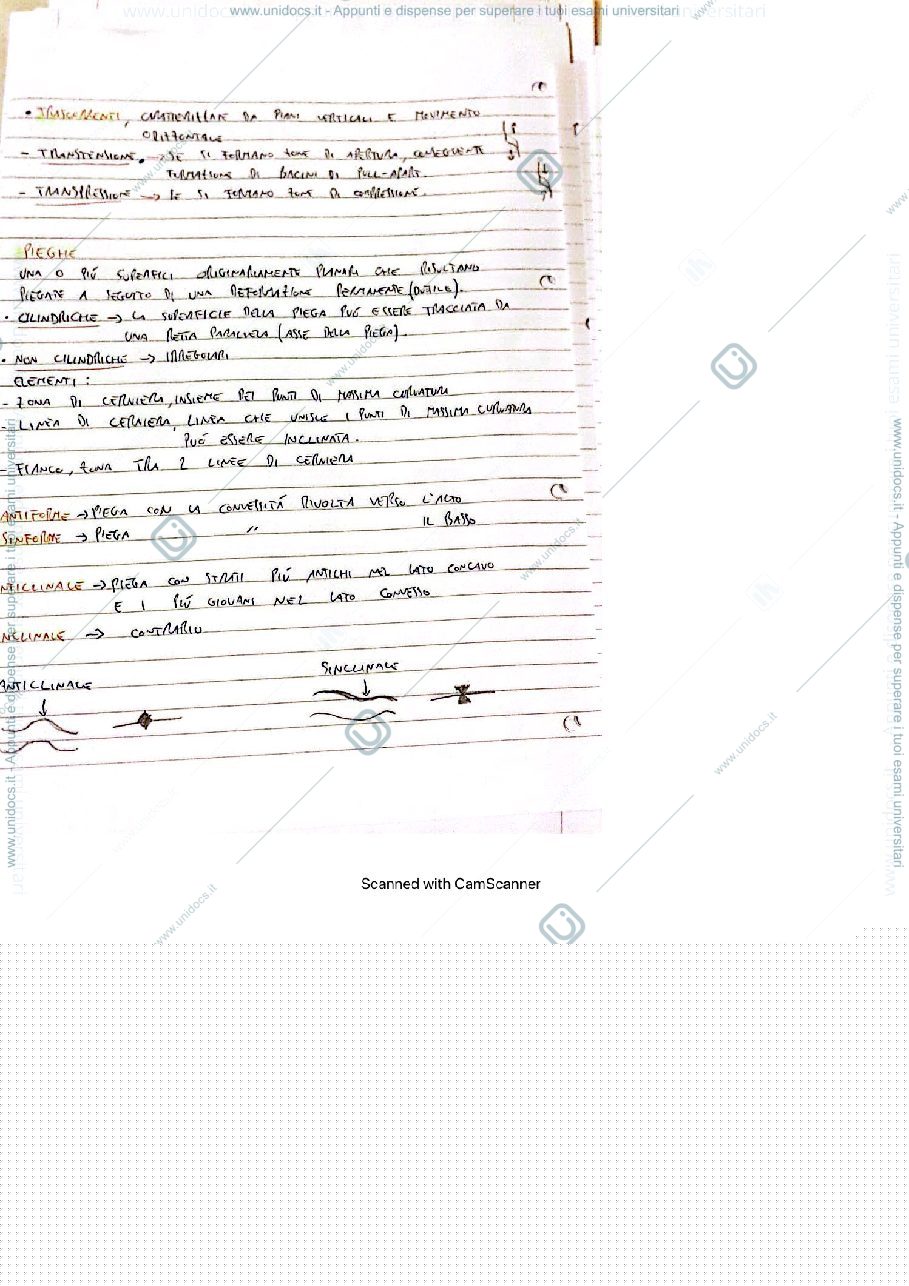 www.unidocs.it - Appunti e dispense per superare i tuoi esami universitari
• TRASCORRENTI, CARATTERIZZATE DA PIANI VERTICALI E MOVIMENTO
ORIZZONTALE
- TRANSTENSIONE. → SE SI FORMANO ZONE DI APERTURA, CONSEGUENTE
FORMAZIONE DI BACINI DI PULL-APART.
- TRANSPRESSIONE → SE SI FORMANO ZONE DI COMPRESSIONE.
PIEGHE
UNA O PIÚ SUPERFICI ORIGINARIAMENTE PLANARI CHE RISULTANO
PIEGATE A SEGUITO DI UNA DEFORMAZIONE PERMANENTE (DUTTILE).
• CILINDRICHE → LA SUPERFICIE DELLA PIEGA PUÓ ESSERE TRACCIATA DA
UNA RETTA PARALLELA (ASSE DELLA PIEGA).
• NON CILINDRICHE → IRREGOLARI
ELEMENTI:
- ZONA DI CERNIERA, INSIEME DEI PUNTI DI MASSIMA CURVATURA
- LINEA DI CERNIERA, LINEA CHE UNISCE I PUNTI DI MASSIMA CURVATURA
PUÓ ESSERE INCLINATA.
- FIANCO, ZONA TRA 2 LINEE DI CERNIERA
ANTIFORME → PIEGA CON LA CONVESSITÁ RIVOLTA VERSO L'ALTO
SINFORME → PIEGA " IL BASSO
NTICLINALE → PIEGA CON STRATI PIÚ ANTICHI NEL LATO CONCAVO
E I PIÚ GIOVANI NEL LATO CONVESSO
NCLINALE → CONTRARIO
SINCLINALE
ANTICLINALE
Scanned with CamScanner
www.unidocs.it - Appunti e dispense per superare i tuoi esami universitari
www.unidocs.it - Appunti e dispense per superare i tuoi esami universitari